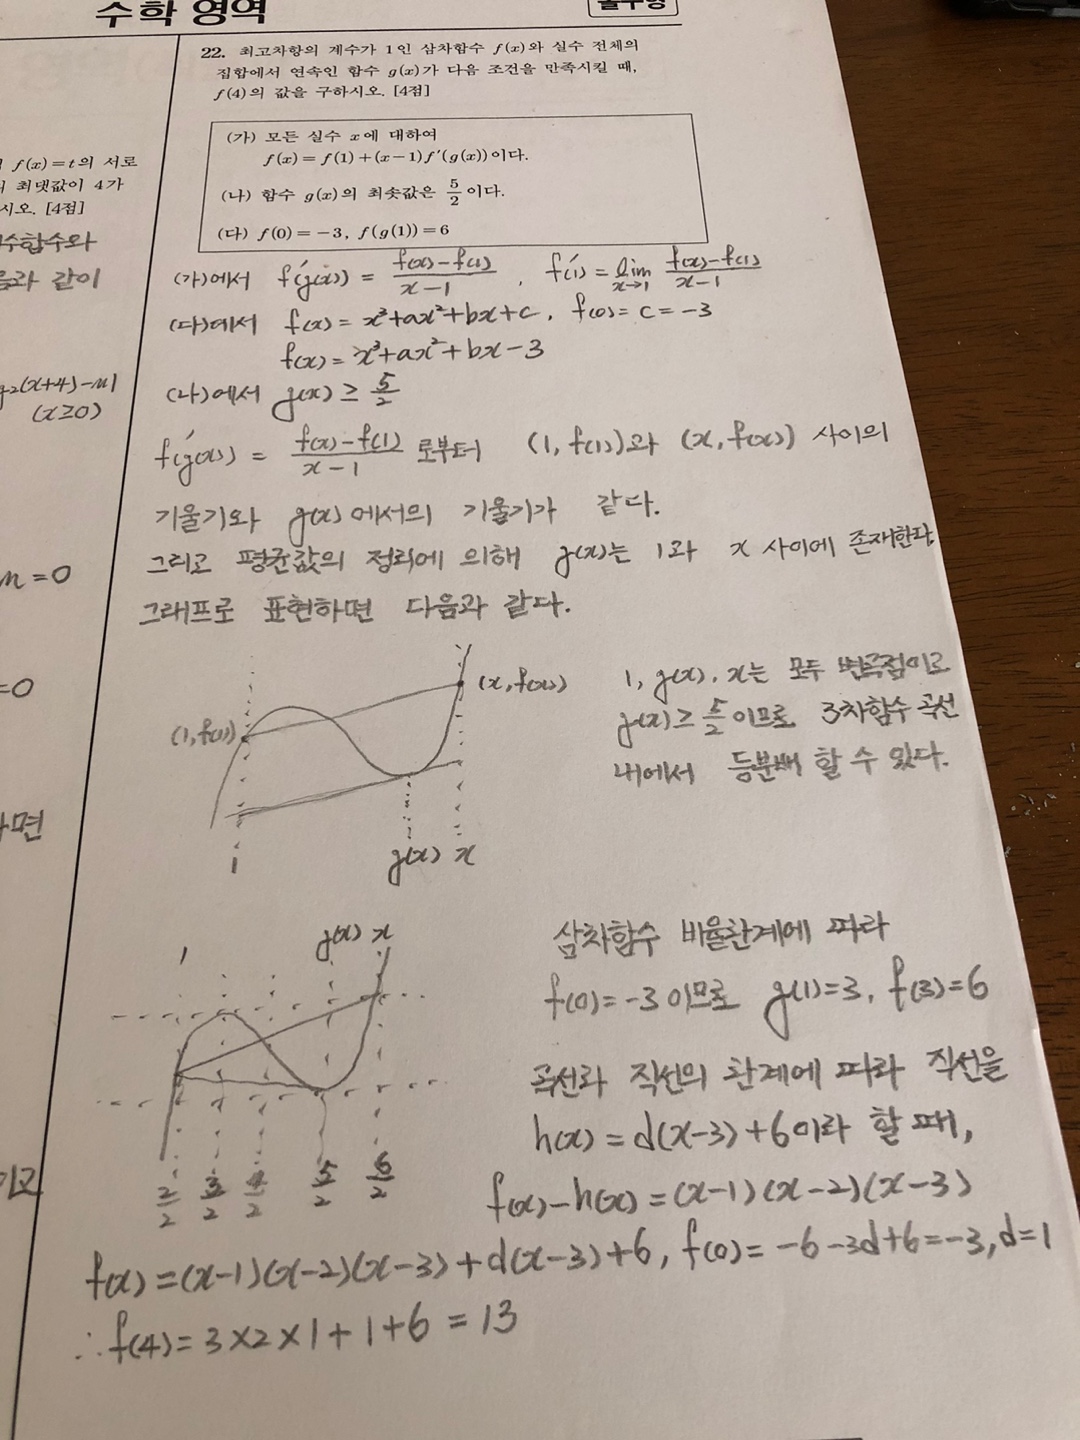 수학 영역
22. 최고차항의 계수가 1인 삼차함수 f(x)와 실수 전체의
집합에서 연속인 함수 g(x)가 다음 조건을 만족시킬 때,
f(4)의 값을 구하시오. [4점]
(가) 모든 실수 x에 대하여
f(x)=f(1)+(x-1)f'(g(x))이다.
(나) 함수 g(x)의 최솟값은 5/2이다.
(다) f(0)=-3, f(g(1))=6
f(x)=t의 서로
최댓값이 4가
시오. [4점]
수함수와
같이
2(x+4)-m|
(x≥0)
m=0
=0
(가)에서 f'(g(x)) = (f(x)-f(1))/(x-1), f'(1) = lim x→1 (f(x)-f(1))/(x-1)
(다)에서 f(x)=x³+ax²+bx+c, f(0)=c=-3
f(x)=x³+ax²+bx-3
(나)에서 g(x) ≥ 5/2
f'(g(x)) = (f(x)-f(1))/(x-1) 로부터 (1, f(1))과 (x, f(x)) 사이의
기울기와 g(x)에서의 기울기가 같다.
그리고 평균값의 정리에 의해 g(x)는 1과 x 사이에 존재한다.
그래프로 표현하면 다음과 같다.
(x, f(x))
(1, f(1))
1 g(x) x
1, g(x), x는 모두 변곡점이고
g(x) ≥ 5/2 이므로 3차함수 곡선
내에서 등분배 할 수 있다.
1 g(x) x
2/2 3/2 4/2 5/2 6/2
삼차함수 비율관계에 따라
f(0)=-3이므로 g(1)=3, f(3)=6
곡선과 직선의 관계에 따라 직선을
h(x)=d(x-3)+6이라 할 때,
f(x)-h(x)=(x-1)(x-2)(x-3)
f(x)=(x-1)(x-2)(x-3)+d(x-3)+6, f(0)=-6-3d+6=-3, d=1
∴f(4)=3×2×1+1+6=13